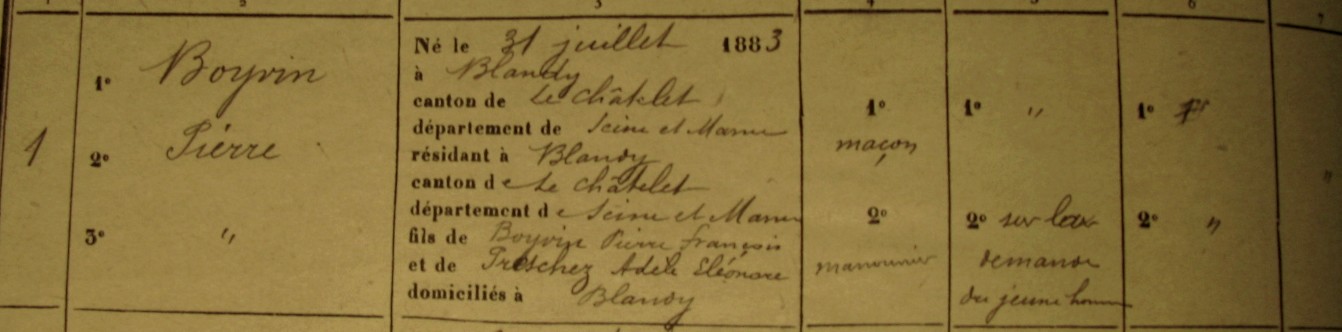 2 3 4 5 6 7
1
1º Boyvin
2º Pierre
3º "
Né le 31 juillet 1883
à Blandy
canton de Le Châtelet
département de Seine et Marne
résidant à Blandy
canton de Le Châtelet
département de Seine et Marne
fils de Boyvin Pierre François
et de Adèle Eléonore
domiciliés à Blandy
1º
maçon
2º
manouvrier
1º "
2º sur
demande
du jeune homme
1º
2º "
"